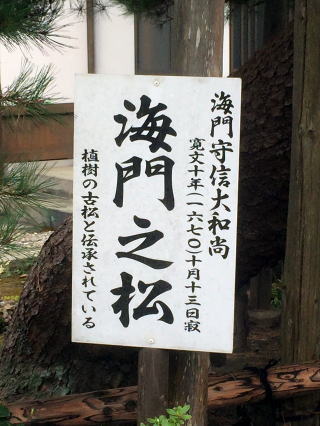 海門守信大和尚
寛文十年(一六七〇)十月十三日寂
海門之松
植樹の古松と伝承されている